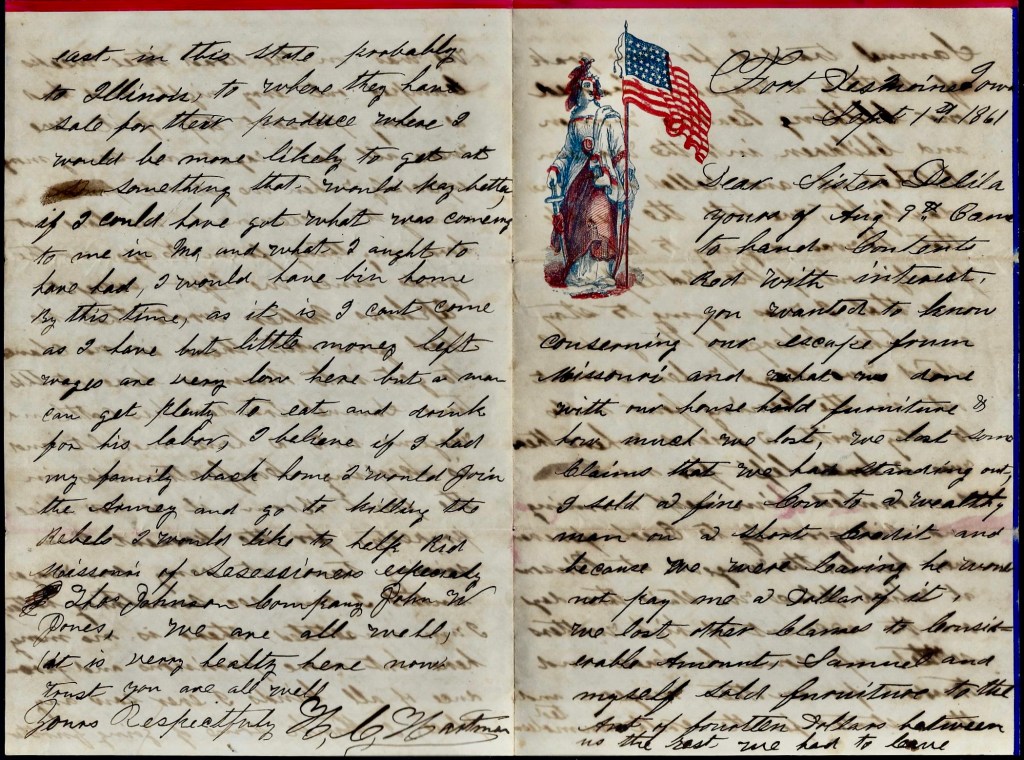 Fort Desmoines Iowa
Sept 1st 1861
Dear Sister Delila
yours of Aug 9th Came
to hand Contents
Red with interest.
you wanted to know
conserning our escape from
Missouri and what we done
with our house hold furniture &
how much we lost, we lost some
Claims that we had standing out,
I sold a fine Cow to a wealthy
man on a short Credit and
because we were leaving he would
not pay me a Dollar of it,
we lost other Claimes to Consid-
erable Amount, Samuel and
myself sold furniture to the
Amt of fourtten Dollars between
us the rest we had to leave
east, in this state probably
to Illinois, to where they have
sale for their produce where I
would be more likely to get at
something that would pay better,
if I could have got what was comeing
to me in Mo and what I aught to
have had, I would have bin home
By this time, as it is I cant come
as I have but little money left
wages are very low here but a man
can get plenty to eat and drink
for his labor, I believe if I had
my family back home I would Join
the Armey and go to killing the
Rebels I would like to help Rid
Missouri of Sesessioners especialy
Thos Johnson Company John W
Jones, we are all well,
it is verry healty here now
trust you are all well
Yours Respectfuly H. C. Hartman